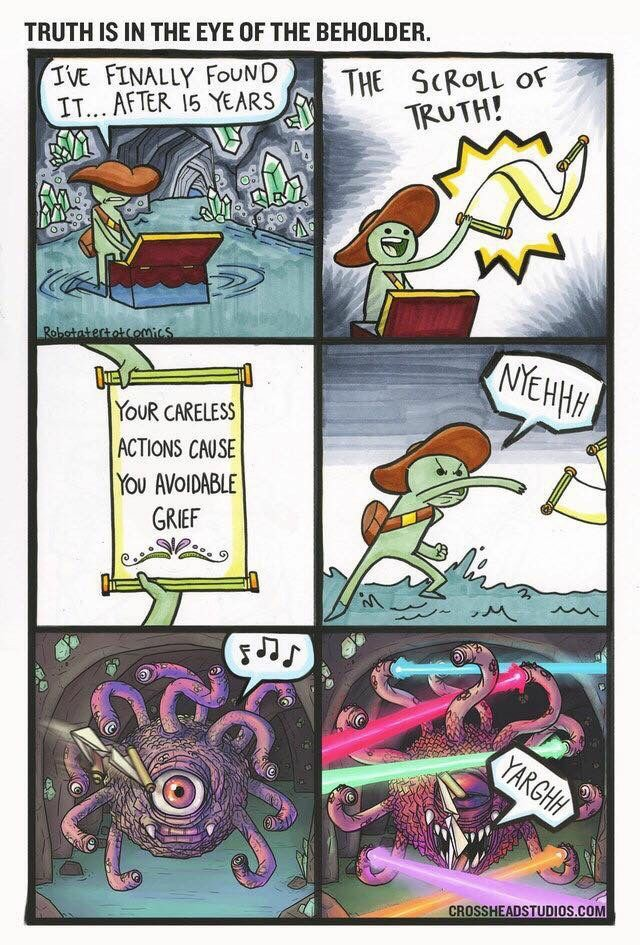 TRUTH IS IN THE EYE OF THE BEHOLDER.
I'VE FINALLY FOUND
IT... AFTER 15 YEARS
Robotatertotcomics
THE SCROLL OF
TRUTH!
YOUR CARELESS
ACTIONS CAUSE
YOU AVOIDABLE
GRIEF
NYEHHH
YARGHH
CROSSHEADSTUDIOS.COM